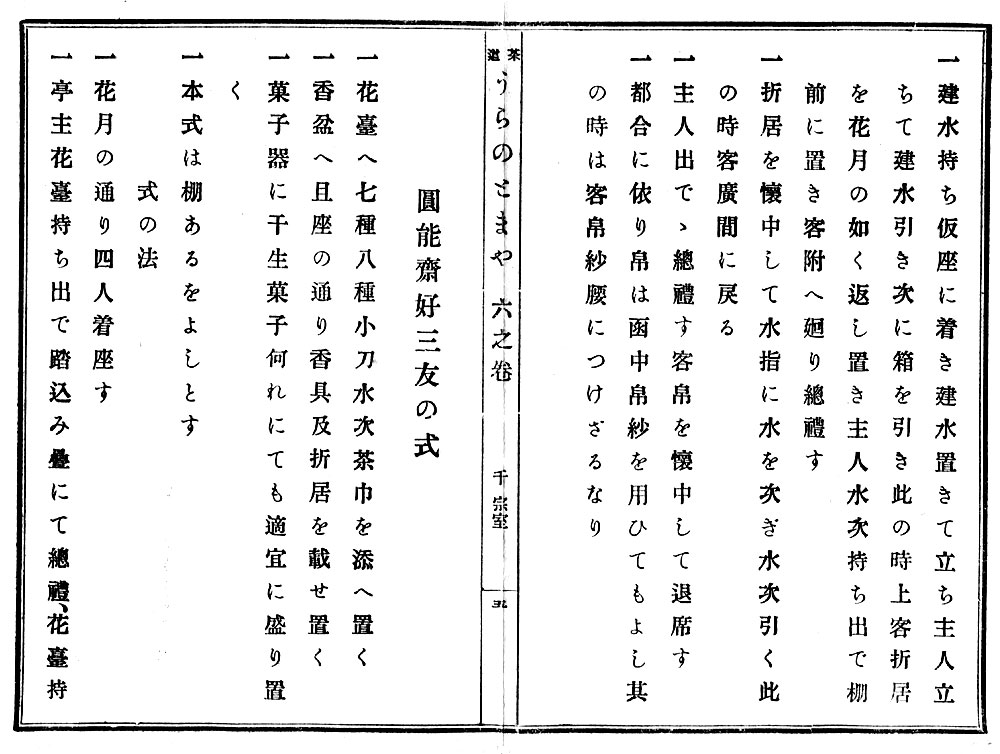 一建水持ち仮座に着き建水置きて立ち主人立
ちて建水引き次に箱を引き此の時上客折居
を花月の如く返し置き主人水次持ち出で棚
前に置き客附へ廻り總禮す
一折居を懷中して水指に水を次ぎ水次引く此
の時客廣間に戻る
一主人出でゝ總禮す客帛を懷中して退席す
一都合に依り帛は函中帛紗を用ひてもよし其
の時は客帛紗腰につけざるなり
茶道 うらのとまや 六之卷 千宗室 五
圓能齋好三友の式
一花臺へ七種八種小刀水次茶巾を添へ置く
一香盆へ且座の通り香具及折居を載せ置く
一菓子器に干生菓子何れにても適宜に盛り置
く
一本式は棚あるをよしとす
式の法
一花月の通り四人着座す
一亭主花臺持ち出で踏込み疊にて總禮、花臺持